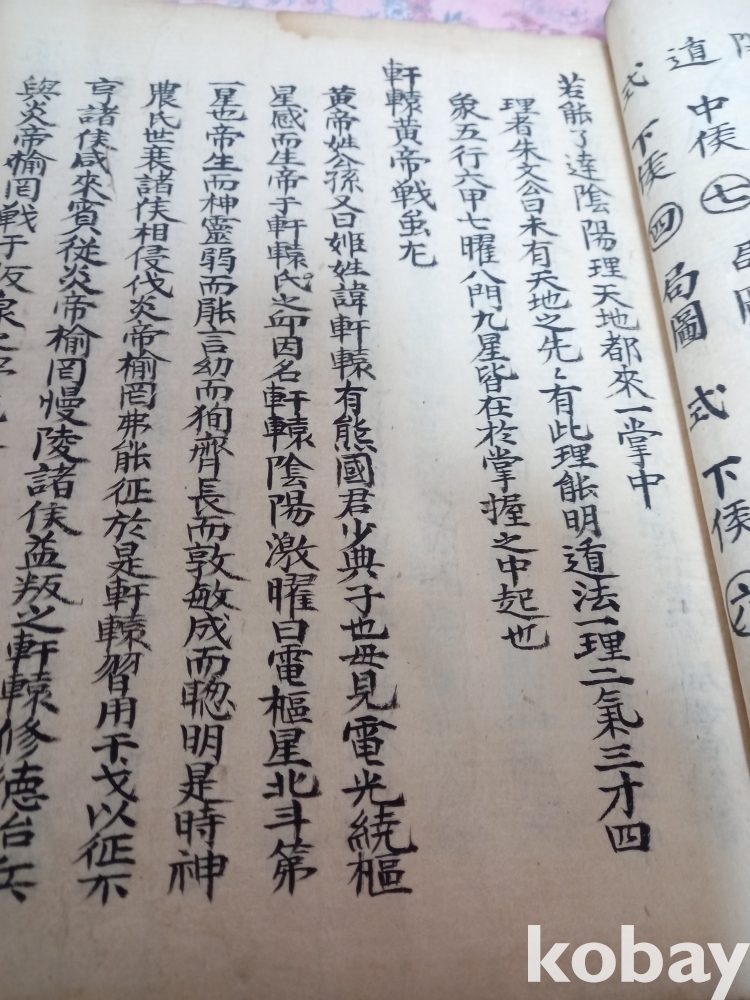 道
式
中侯
下侯
七
四
局圖
式
下侯
六
若能了達陰陽理天地都來一掌中
理者朱文公曰未有天地之先〻有此理能明道法一理二氣三才四
象五行六甲七曜八門九星皆在於掌握之中起也
軒轅黃帝戰蚩尤
黃帝姓公孫又曰姬姓諱軒轅有熊國君少典子也母見電光繞樞
星感而生帝于軒轅氏之邱因名軒轅陰陽激曜曰電樞星北斗第
一星也帝生而神靈弱而能言幼而狥齊長而敦敏成而聰明是時神
農氏世衰諸侯相侵伐炎帝榆罔弗能征於是軒轅習用干戈以征不
亨諸侯咸來賓從炎帝榆罔慢陵諸侯益叛之軒轅修德治兵
與炎帝榆罔戰于阪泉之
kobay